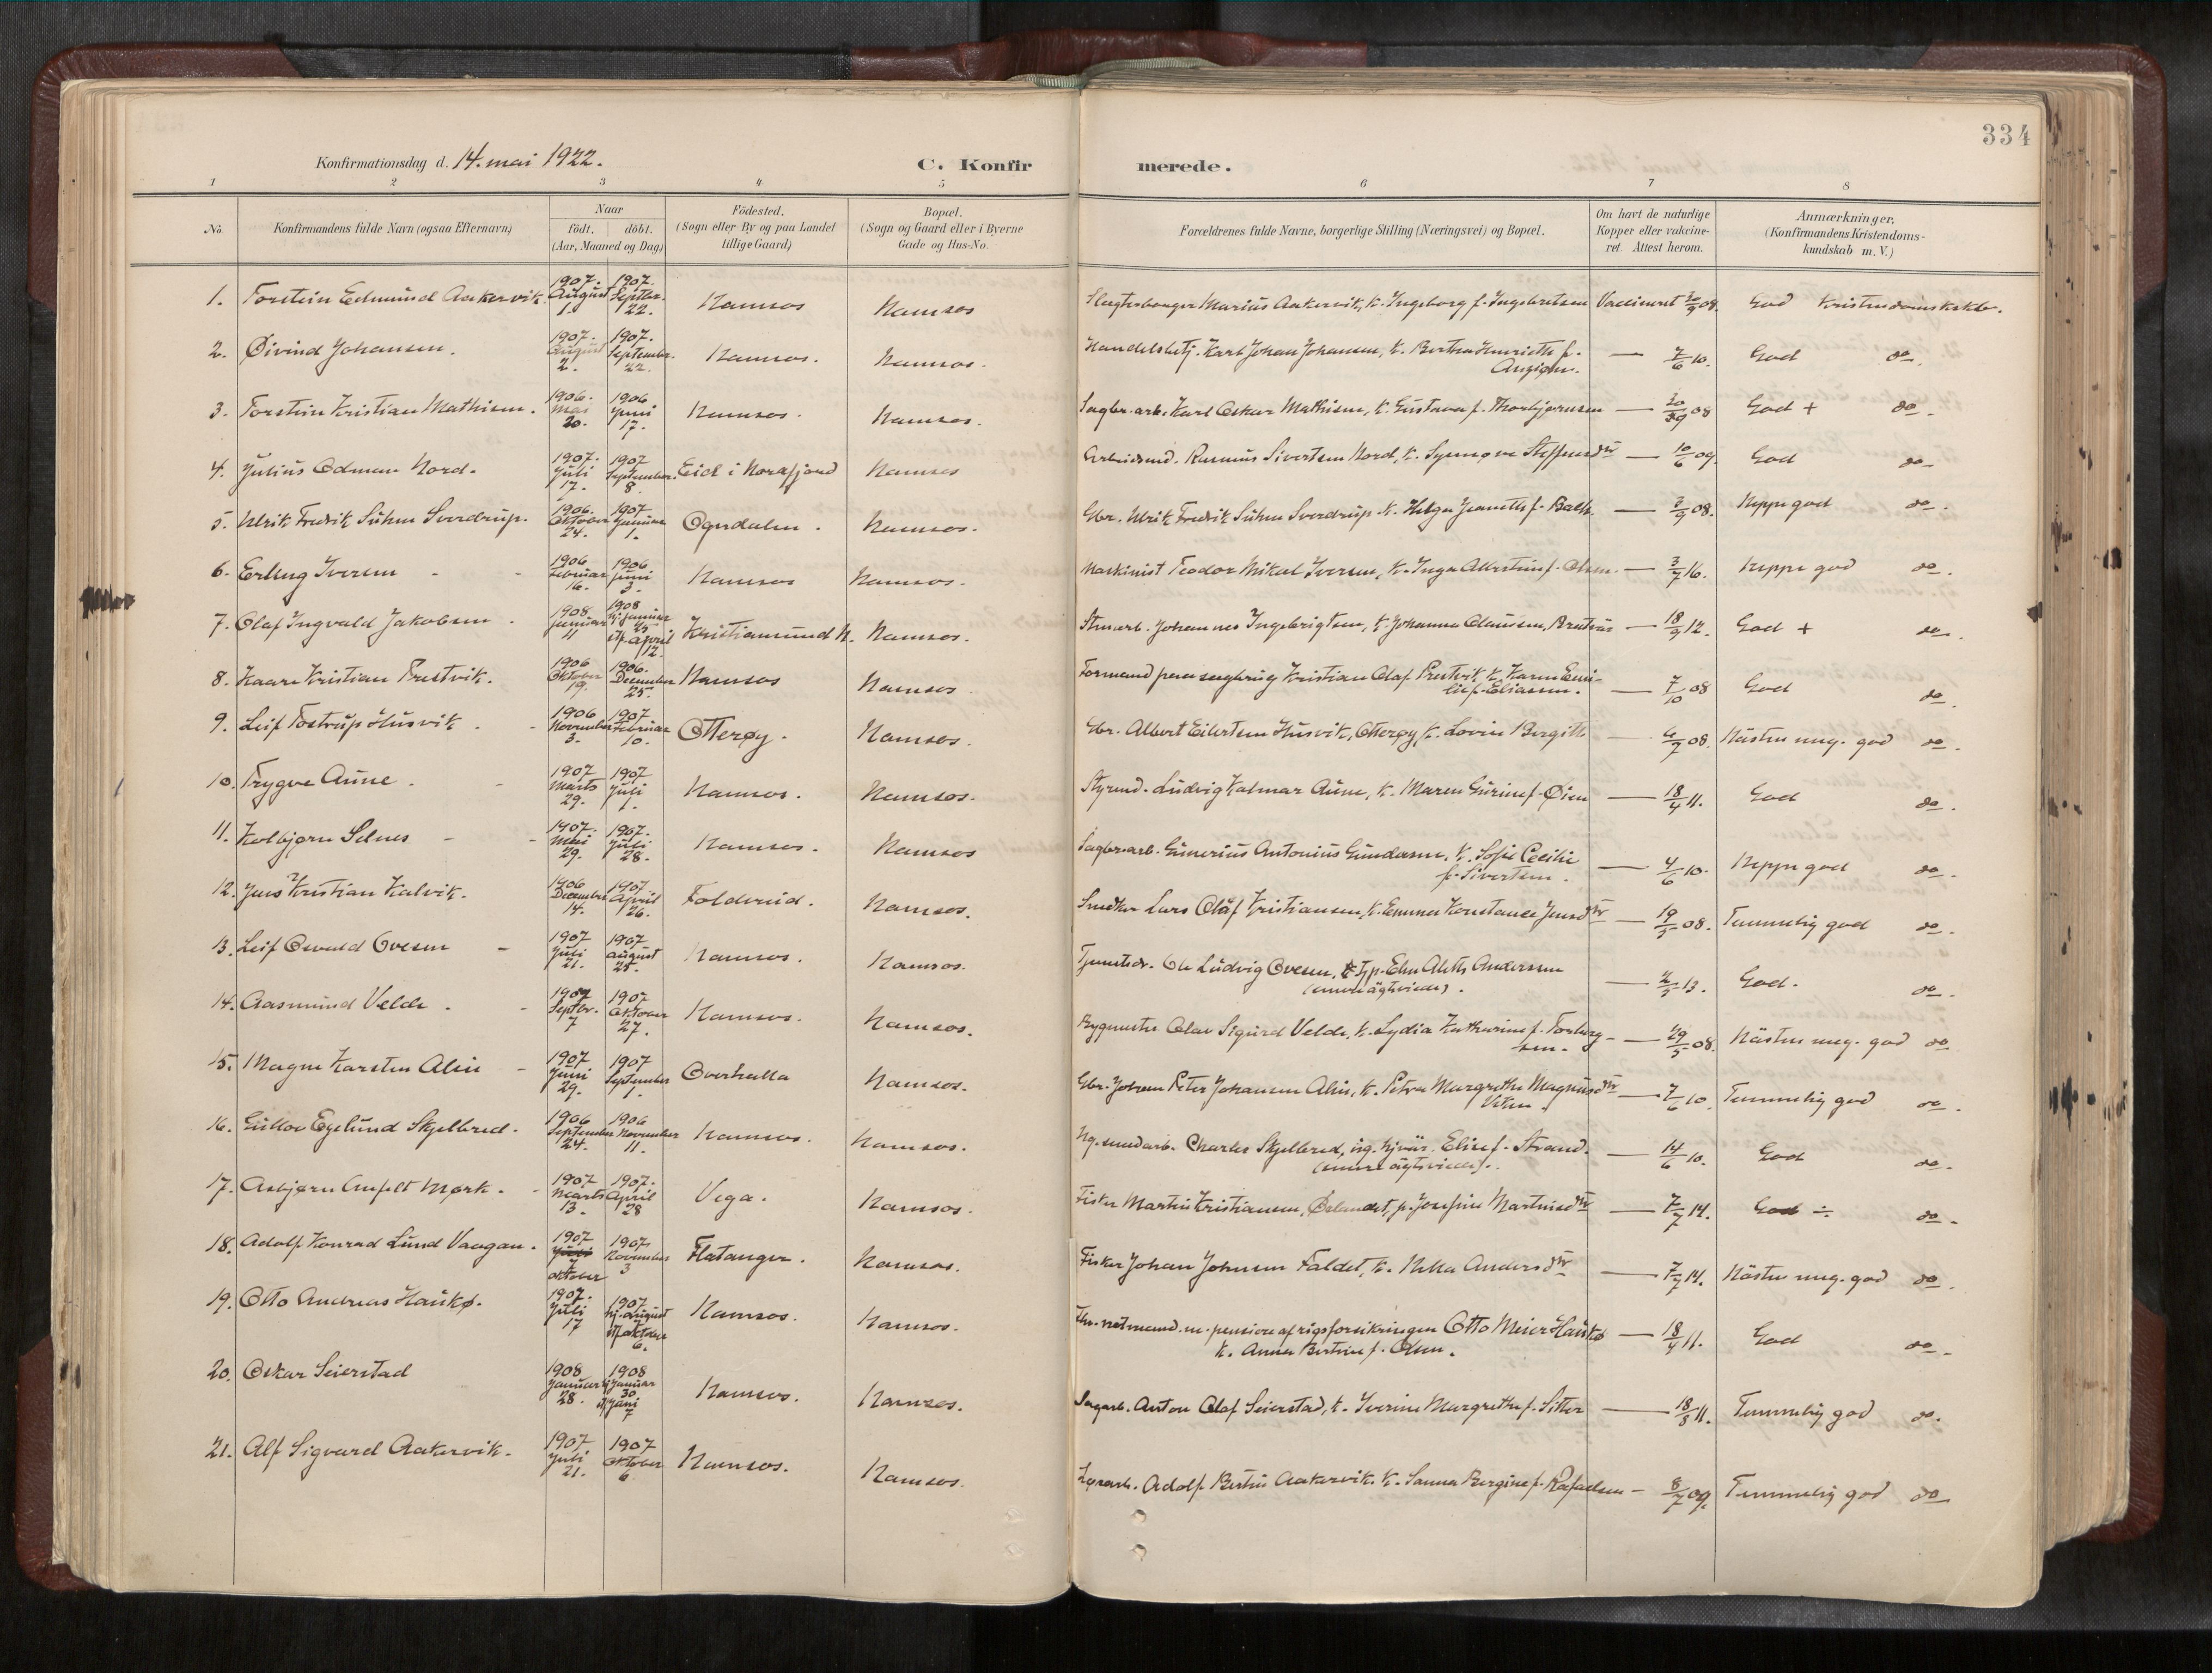 334
Konfirmationsdag d. 14. mai 1922.
C. Konfirmerede.
1 2 3 4 5 6 7 8
No.
Konfirmandens fulde Navn (ogsaa Efternavn)
Naar
födt. döbt.
(Aar, Maaned og Dag)
Födested.
(Sogn eller By og paa Landet
tillige Gaard)
Bopæl.
(Sogn og Gaard eller i Byerne
Gade og Hus-No.
Forældrenes fulde Navne, borgerlige Stilling (Næringsvei) og Bopæl.
Om havt de naturlige
Kopper eller vakcine-
ret. Attest herom.
Anmærkninger,
(Konfirmandens Kristendoms-
kundskab m. V.)
1. Torstein Edmund Aakervik. 1907. August 1. 1907. Septbr. 22. Namsos Namsos Marius Aakervik, k. Ingeborg f. Ingebretsen Vaccineret 08. God Kristendomskskb.
2. Øivind Johansen. 1907. August 2. 1907. September. 22. Namsos. Namsos. Handelsbetj. Karl Johan Johansen, k. Bertha Henriette f. — 7/6 10. God do.
3. Torstein Kristian Mathisen. 1906. Mai 20. 1906 Juni 17. Namsos. Namsos. Sagbr.arb. Karl Oskar Mathisen, k. Gustava f. Thorbjørnsen — 08 God + do.
4. Julius Odman Nord. 1907. Juli 17. 1907 September. 8. Eid i Namsos Arbeidsmd. Rasmus Sivertsen Nord, k. Synnøve Steffensdtr — 10/6 09. God do
5. Ulrik Fredrik Suhm Sverdrup. 1906. Oktober 24. 1907 Januar 1. Ogndalen. Namsos. Gbr. Ulrik Fredrik Suhm Sverdrup k. Helga Jeanette f. — 08. Neppe god do.
6. Erling Iversen 1906 Februar 16. 1906 Juni 3. Namsos Namsos. Maskinist Teodor Mikal Iversen, k. Inga f. Olsen. — 3/7 16. Neppe god do.
7. Olaf Ingvald Jakobsen. 1908 Januar 11 1908 hj. Januar 25 st. April 12. Kristiansund N. Namsos. Johannes Ingebrigtsen, k. Johanna — 18/9 12. God + do.
8. Kaare Kristian Prestvik. 1906 Oktober 19. 1906. December 25. Namsos Namsos. Formand Kristian Olaf Prestvik k. Karen Emilie f. Eliassen. — 7/10 08 God do.
9. Leif Tostrup Husvik. 1906 November 3. 1907 Februar 10. Otterøy. Namsos. Gbr. Albert Eilertsen Husvik, Otterøy, k. Lovise Bergitte — 08. Næsten meg. god do.
10. Trygve Aune. 1907 Marts 29. 1907 Juli 1. Namsos. Namsos. Styrmd. Ludvig Kalmar Aune, k. Maren Gurine f. Øien — 18/4 11. God do.
11. Kolbjørn Selnes 1907. Mai 29. 1907. Juli 28. Namsos. Namsos Sagbr.arb. Gunerius Antonius Gundersen, k. Sofie Cecilie f. Sivertsen. — 4/6 10. Neppe god do.
12. Jens Kristian Kalvik. 1906 December 14. 1907 April 26. Foldereid. Namsos. Snedker Lars Olaf Kristiansen, k. Emma Konstance Jensdtr — 19/5 08. Temmelig god do.
13. Leif Osvald Ovesen 1907 Juli 21. 1907 August 25. Namsos. Namsos. Ole Ludvig Ovesen, Elen Aleth Andersen — 13. God. do.
14. Aasmund Velde. 1907 Septbr. 7 1907 Oktober 27. Namsos. Namsos. Bygmester Olav Sigurd Velde, k. Lydia Katharina f. Torbergsen. — 29/5 08. Næsten meg. god do
15. Magne Karsten Alsie 1907 Juni 29. 1907 September 1. Overhalla Namsos. Gbr. Johan Peter Johansen k. Petra Margrethe Magnusdtr — 7/6 10. Temmelig god do.
16. Egelund Skjelbred. 1906 September 24. 1906 November 11. Namsos. Namsos. Charles Skjelbred, Elise f. Strand. — 14/6 10. God do.
17. Asbjørn Anfelt Mørk. 1907 Marts 13. 1907. April 28 Vega. Namsos. Fisker Martin Kristiansen, Josefine Martinsdtr — 7/7 14. God ÷ do.
18. Adolf Konrad Lund Vaagan. 1907 Oktober 1907 November 3 Flatanger. Namsos. Fisker Johan Johnsen Faldet, k. Andersdtr — 7/7 14. Næsten meg. god do.
19. Otto Andreas Haukø. 1907. Juli 17 1907 hj. August st. Oktober 6. Namsos. Namsos. Otto Meier Haukø k. Anna f. Olsen. — 18/4 11. God do.
20. Oskar Seierstad 1908 Januar 28. 1908 hj. Januar 30. st. Juni 7 Namsos. Namsos. Sagarb. Anton Olaf Seierstad, k. Iverine Margrethe f. Sitter — 18/8 11. Temmelig god do.
21. Alf Sigvard Aakervik. 1907 Juli 21. 1907 Oktober 6 Namsos. Namsos. Adolf Aakervik. k. Sanna Bergine f. Rafaelsen — 8/7 09. Temmelig god do